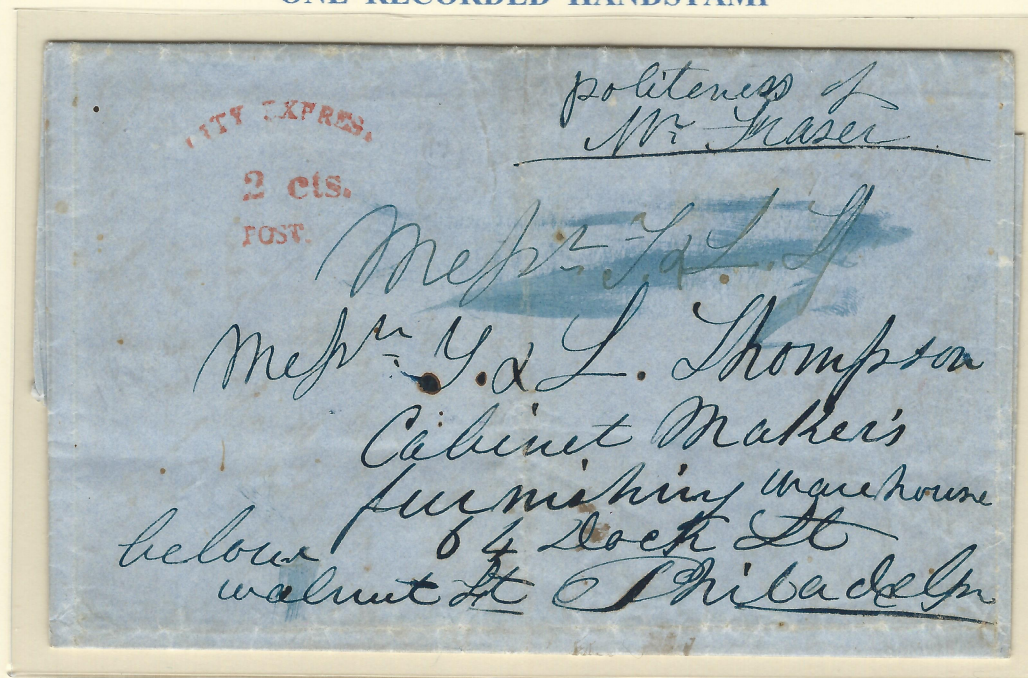 ONE RECORDED HANDSTAMP
CITY EXPRES.
2 cts.
POST.
politeness of
Mr Fraser
Messrs T. & L. T
Messrs T. & L. Thompson
Cabinet Maker's
furnishing warehouse
64 Dock St
below
walnut St Philadelpa